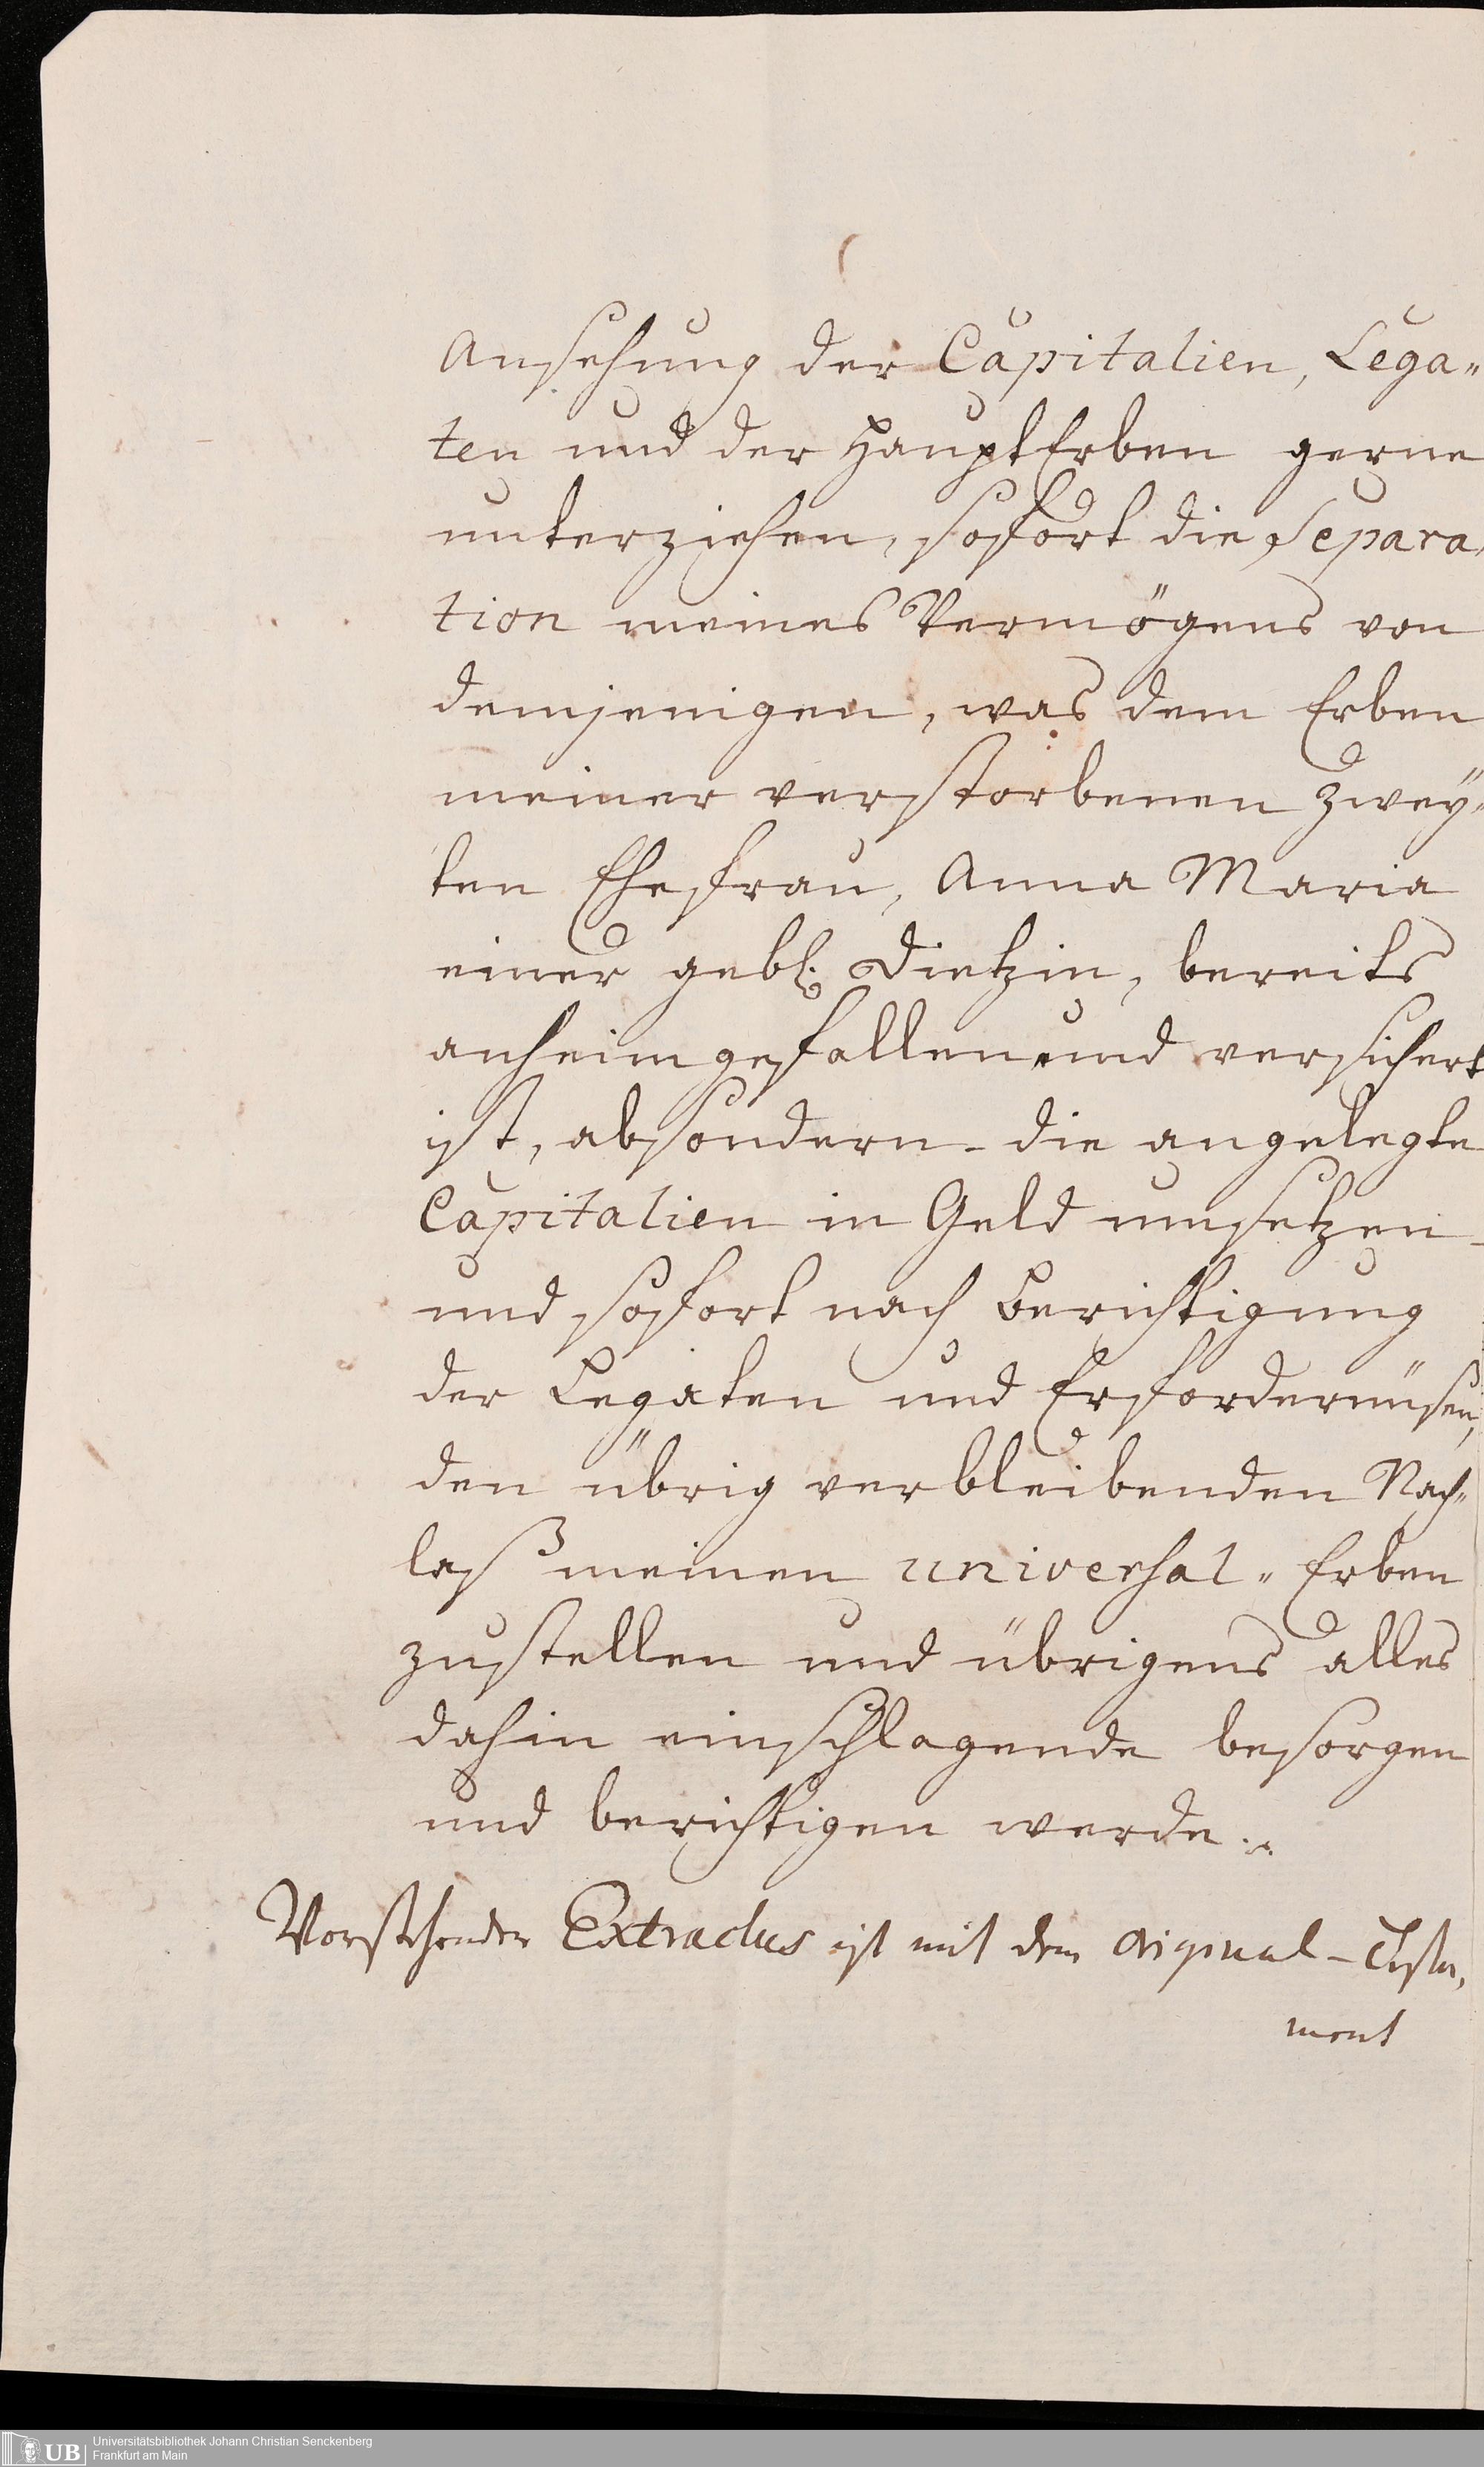 Ansehung der Capitalien, Lega„
ten und der HauptErben gerne
unterziehen, sofort die Separa„
tion meines Vermögens von
demjenigen, was dem Erben
meiner verstorbenen zwey„
ten Ehefrau, Anna Maria
einer gebl. Dietzin, bereits
anheimgefallen und versichert
ist, absondern - die angelegte
Capitalien in Geld umsetzen -
und sofort nach Berichtigung
der Legaten und Erfordernüsen,
den übrig verbleibenden Nach„
laß meinen universal„ Erben
zustellen und übrigens alles
dahin einschlagende besorgen
und berichtigen werde.
Vorstehender Extractus ist mit dem Original - Testa„
ment
UB
Universitätsbibliothek Johann Christian Senckenberg
Frankfurt am Main